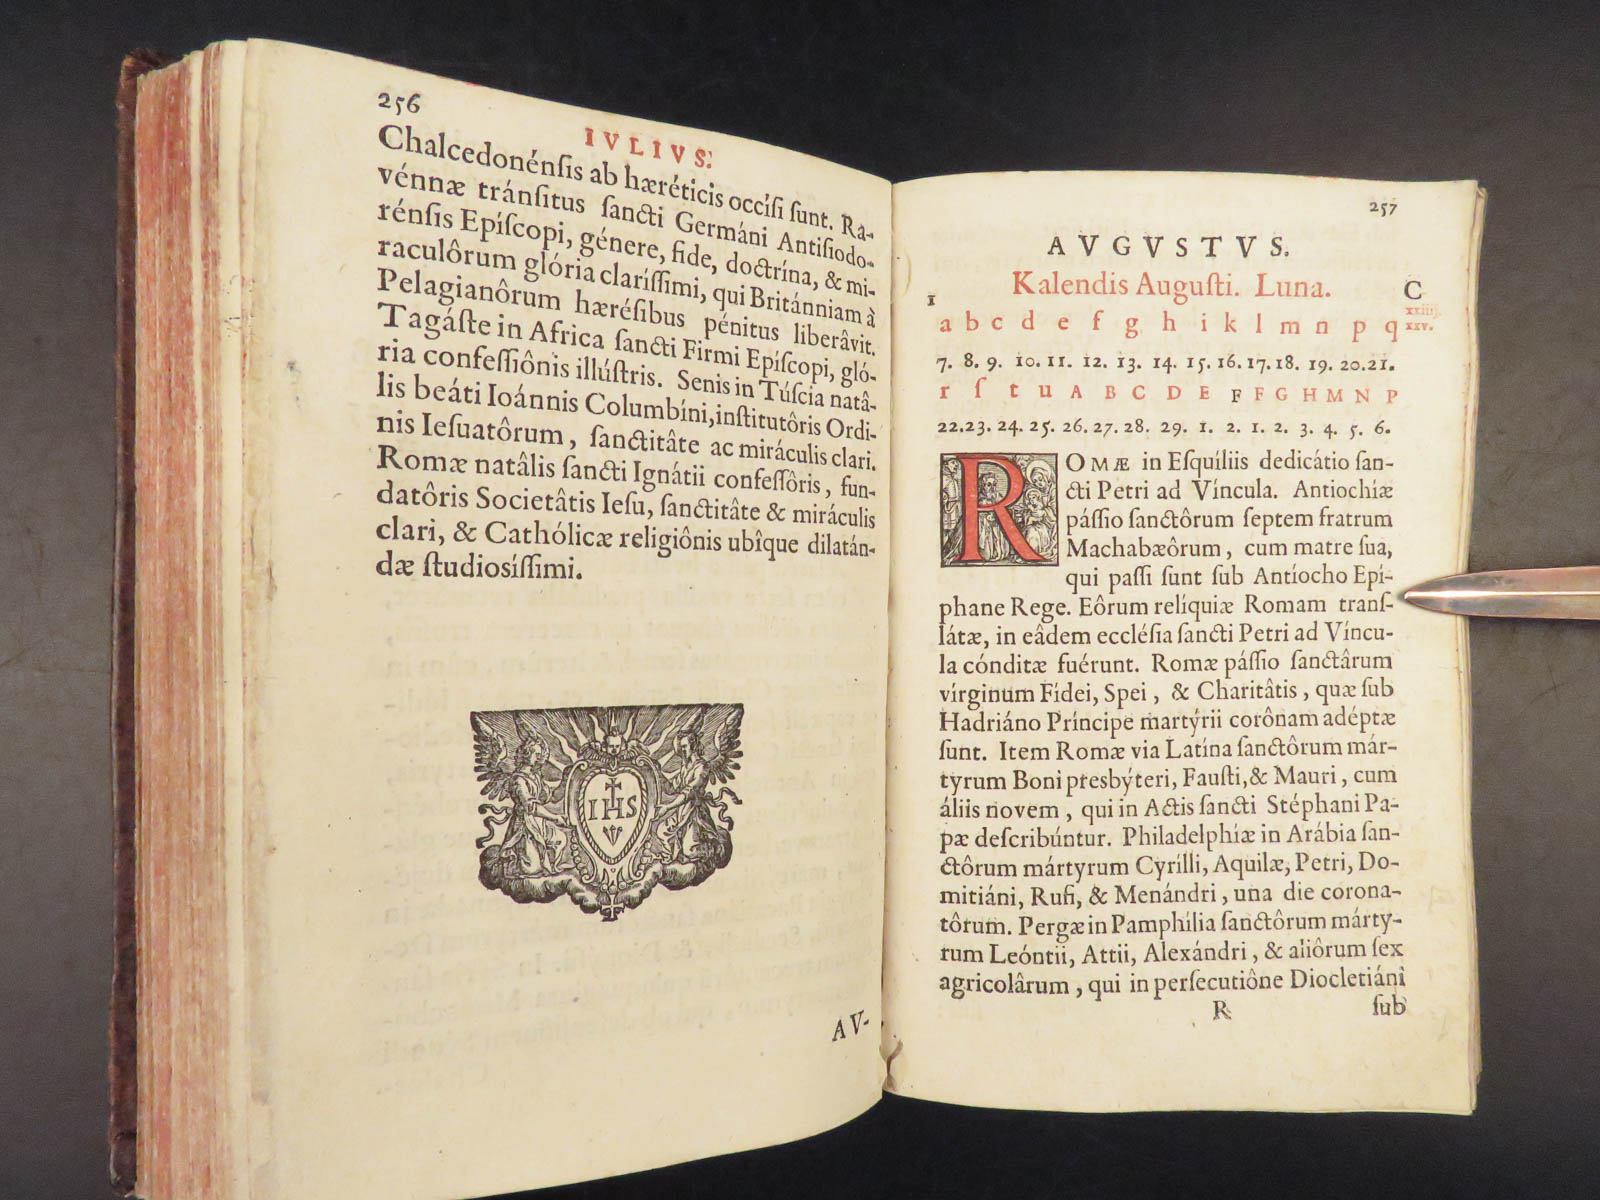 256
IVLIVS.
Chalcedonénſis ab hæréticis occíſi ſunt. Ra-
vénnæ tránſitus ſancti Germáni Antiſiodo-
rénſis Epíſcopi, génere, fide, doctrína, & mi-
raculôrum glória claríſſimi, qui Británniam à
Pelagianôrum hæréſibus pénitus liberâvit.
Tagáſte in Africa ſancti Firmi Epíſcopi, gló-
ria confeſſiônis illúſtris. Senis in Túſcia natâ-
lis beáti Ioánnis Columbíni, inſtitutôris Ordi-
nis Ieſuatôrum, ſanctitâte ac miráculis clari.
Romæ natâlis ſancti Ignátii confeſſôris, fun-
datôris Societâtis Ieſu, ſanctitâte & miráculis
clari, & Cathólicæ religiônis ubîque dilatán-
dæ ſtudiosíſſimi.
IHS
AV-
257
AVGVSTVS.
Kalendis Auguſti. Luna.
1
C
a b c d e f g h i k l m n p q
xxiiij.
xxv.
7. 8. 9. 10. 11. 12. 13. 14. 15. 16. 17. 18. 19. 20. 21.
r ſ t u A B C D E F F G H M N P
22. 23. 24. 25. 26. 27. 28. 29. 1. 2. 1. 2. 3. 4. 5. 6.
ROMÆ in Eſquíliis dedicátio ſan-
cti Petri ad Víncula. Antiochíæ
páſſio ſanctôrum ſeptem fratrum
Machabæôrum, cum matre ſua,
qui paſſi ſunt ſub Antíocho Epí-
phane Rege. Eôrum relíquiæ Romam tranſ-
látæ, in eâdem eccléſia ſancti Petri ad Víncu-
la cónditæ fuérunt. Romæ páſſio ſanctârum
vírginum Fídei, Spei, & Charitâtis, quæ ſub
Hadriáno Príncipe martýrii corônam adéptæ
ſunt. Item Romæ via Latína ſanctôrum már-
tyrum Boni presbýteri, Fauſti, & Mauri, cum
áliis novem, qui in Actis ſancti Stéphani Pa-
pæ deſcribúntur. Philadelphíæ in Arábia ſan-
ctôrum mártyrum Cyrilli, Aquilæ, Petri, Do-
mitiáni, Rufi, & Menándri, una die corona-
tôrum. Pergæ in Pamphília ſanctôrum márty-
rum Leóntii, Attii, Alexándri, & aliôrum ſex
agricolârum, qui in perſecutiône Diocletiáni
R
ſub